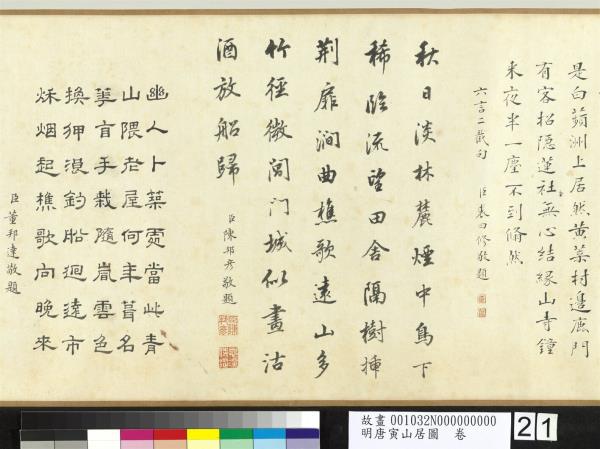 是白蘋洲上居然黃葉村邊鹿門
有客招隱蓮社無心結緣山寺鐘
來夜半一塵不到翛然
六言二截句 臣裘曰修敬題
秋日淡林麓煙中鳥下
稀臨流望田舍隔樹揷
荆扉澗曲樵歌遠山多
竹徑微閶門城似畫沽
酒放船歸
臣陳邦彥敬題
幽人卜築處當此青
山隈老屋何年葺名
華自手栽隨嵐雲色
換狎浪釣船迴遠市
秌烟起樵歌向晚來
臣董邦達敬題
故畫 001032N000000000
明唐寅山居圖 卷
21